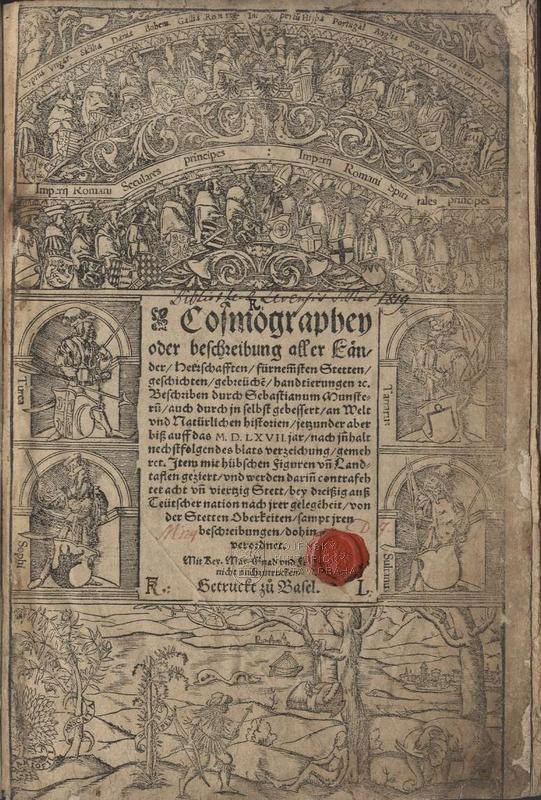 Cyprus Ungari Sicilia Dania Bohem Gallia Rom rex Im periū Hispa Portugal Anglie Scotia
Imperij Romani Seculares principes : Imperij Romani Spiri tales principes
1819
R
Cosmographey
oder beschreibung aller Län-
der / Herrschafften / fürnemsten Stetten /
geschichten / gebreüchē / handtierungen ꝛc.
Beschriben durch Sebastianum Munste-
rū / auch durch jn selbst gebessert / an Welt
vnd Natürlichen historien / jetzunder aber
biß auff das M. D. LXVII. jar / nach jnhalt
nechstfolgendes blats verzeichung / gemeh
ret. Item mit hübschen figuren vñ Land-
taflen geziert / vnd werden darin̄ contrafeh
tet acht vñ viertzig Stett / bey dreißig auß
Teütscher nation nach jrer gelegēheit / von
der Stetten Oberkeiten / sampt jren
beschreibungen / dohin
verordnet.
Mit Key. May. Gnad vnd
nicht nachzutrucken
Getruckt zů Basel.
R.: L:
Turca
Tartarus
Sophi
Sultanus